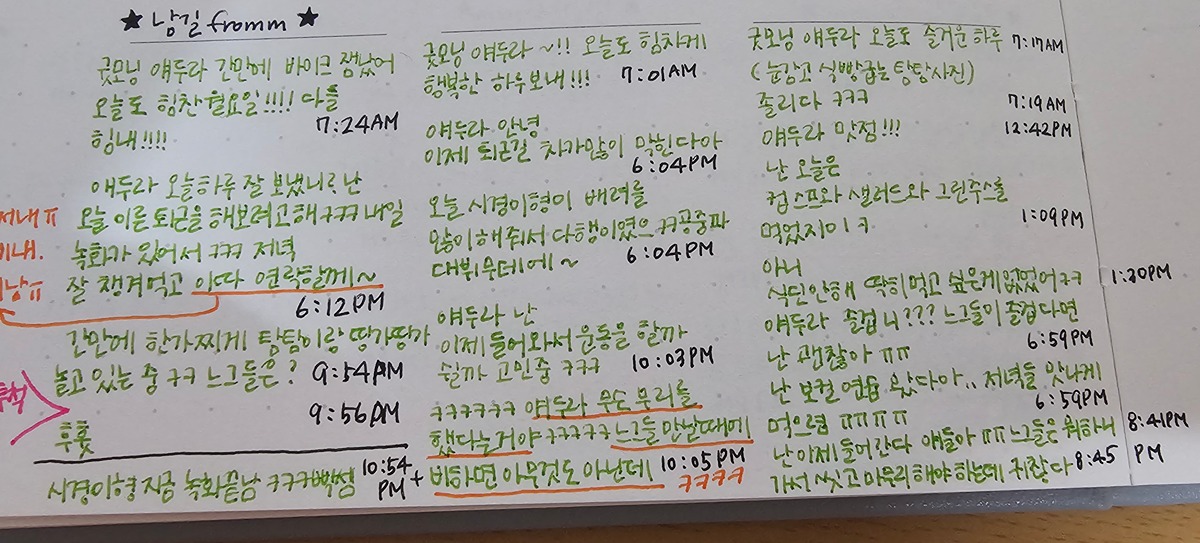 ★ 남길 fromm ★
굿모닝 얘두라 간만에 바이크 잼났어
오늘도 힘찬 월요일!!!! 다들
힘내!!!! 7:24AM
애두라 오늘하루 잘 보냈니? 난
오늘 이른 퇴근을 해보려고해 ㅋㅋㅋ 내일
녹화가 있어서 ㅋㅋㅋ 저녁
잘 챙겨먹고 이따 연락할께~
6:12PM
간만에 한가찌게 탐탐이랑 띵가띵가
놀고 있는 중 ㅋㅋ 느그들은? 9:54PM
9:56PM
후훗
시경이형 지금 녹화끝남 ㅋㅋㅋ빡썸 10:54
PM
굿모닝 얘두라 ~!! 오늘도 힘차게
행복한 하루보내!!! 7:01AM
얘두라 안녕
이제 퇴근길 차가많이 막힌다아
6:04PM
오늘 시경이형이 배려를
많이해줘서 다행이였으 ㅋㅋ공중파
대뷔무데에~ 6:04PM
얘두라 난
이제 들어와서 운동을 할까
쉴까 고민중 ㅋㅋㅋ 10:03PM
ㅋㅋㅋㅋㅋㅋ 얘두라 무슨 무리를
했다는거야 ㅋㅋㅋㅋㅋ 느그들 만날때에
+ 비하면 아무것도 아닌데 10:05PM
ㅋㅋㅋㅋ
굿모닝 얘두라 오늘도 즐거운 하루 7:17AM
(눈감고 식빵굽는 탐탐사진)
졸리다 ㅋㅋㅋ 7:19AM
얘두라 맛점!!! 12:42PM
난 오늘은
컵스프와 샐러드와 그린주스를
먹었지이ㅋ 1:09PM
아니
식단안해 딱히먹고 싶은게없었어ㅋㅋ 1:20PM
얘두라 즐겁니??? 느그들이 즐겁다면
난 괜찮아 ㅠㅠ 6:59PM
난 보컬 연습 왔다아.. 저녁들 맛나게
먹으렴 ㅠㅠㅠㅠ 6:59PM
난 이제 들어간다 얘들아 ㅠㅠ 느그들은 뭐하니 8:41PM
가서 씻고 마무리해야 하는데 귀찮다 8:45 PM